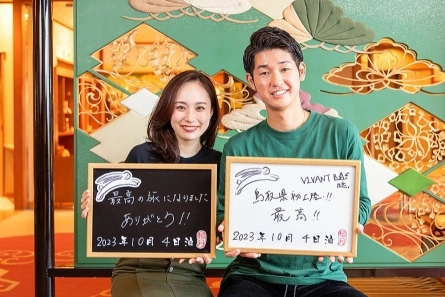 最高の旅になりました
ありがとう!!
2023年10月4日泊
VIVANT
鳥取県初上陸!!
最高!!
2023年10月4日泊